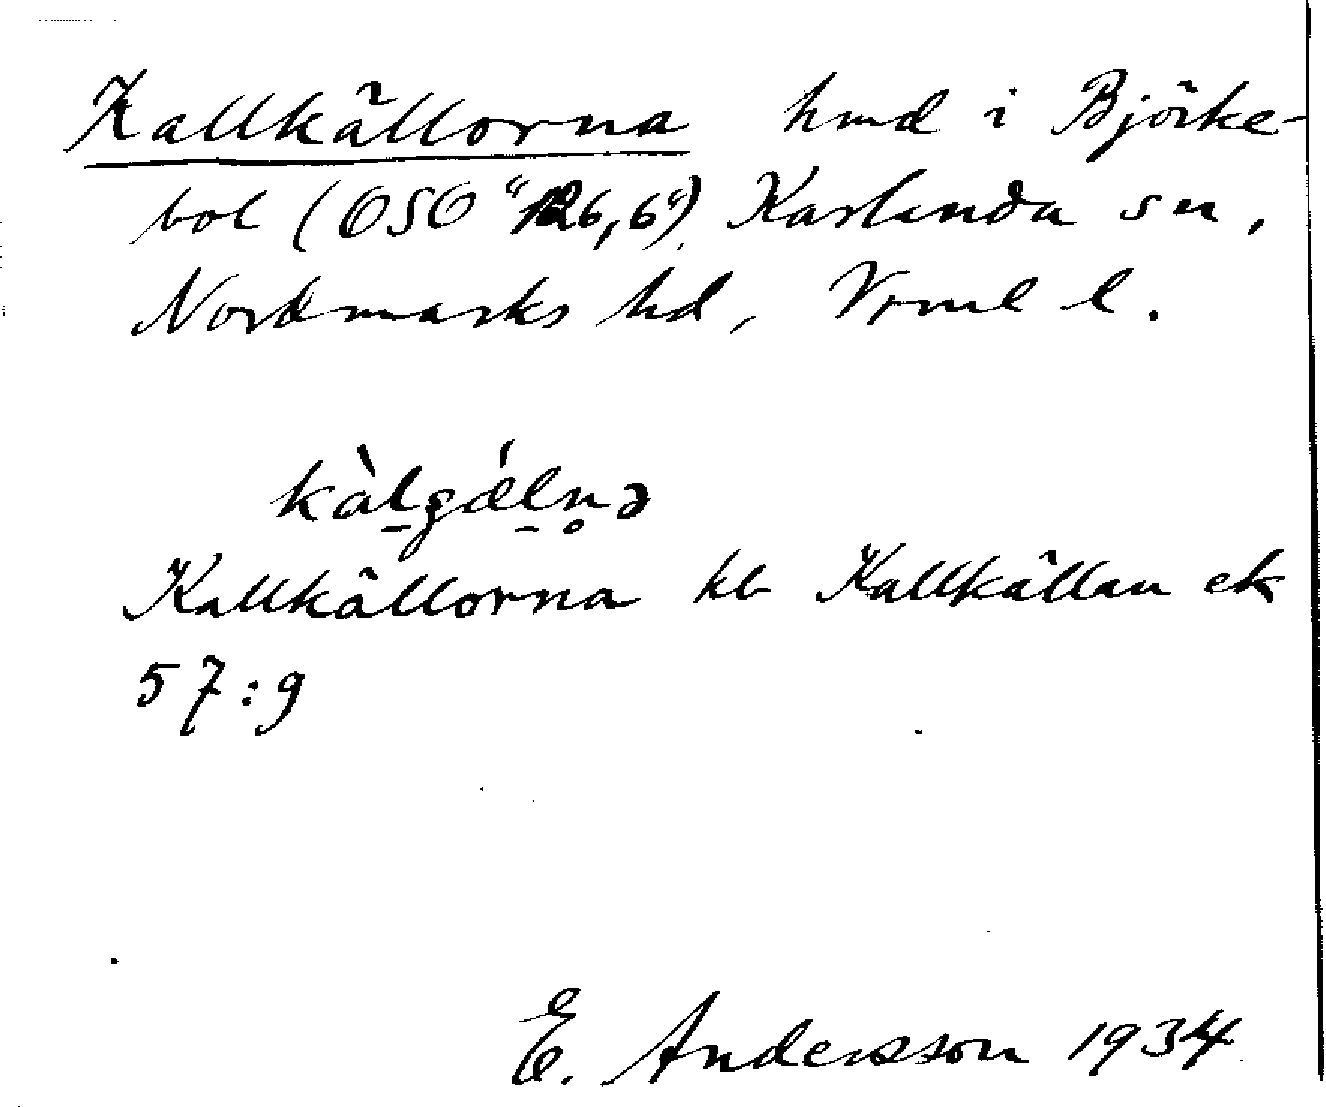 Kallkällorna hmd i Björke-
bol (OSO "126,6") Karlanda sn,
Nordmarks hd, Vrml l.
kàl̠gǽl̠n̥ə
Kallkällorna kb Kallkällan ek
57:9
E. Andersson 1934